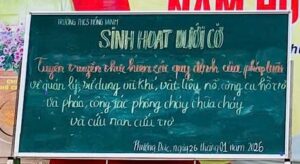 TRƯỜNG THCS HỒNG HẠNH
NĂM
SINH HOẠT DƯỚI CỜ
Tuyên truyền thực hiện các quy định của pháp luật
về quản lý, sử dụng vũ khí, vật liệu nổ, công cụ hỗ trợ
và pháo, công tác phòng cháy chữa cháy
và cứu nạn cứu trợ
Phương Đức, ngày 26 tháng 01 năm 2026